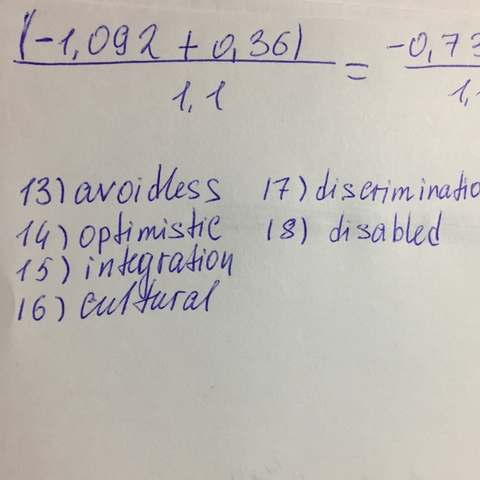 (-1,092 + 0,36) / 1,1 = -0,73 / 1,
13) avoidless 17) discriminatio
14) optimistic 18) disabled
15) integration
16) cultural